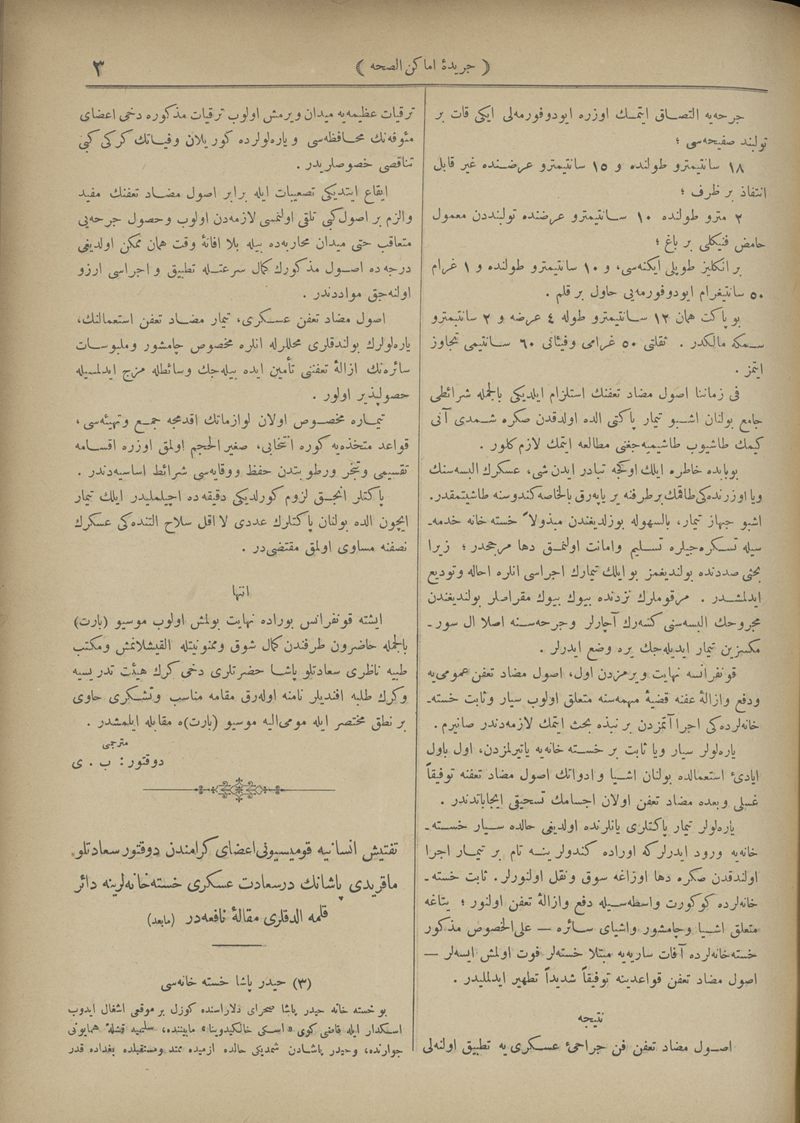 ﴿ جريدۀ اماكن الصحه ﴾
٣
جرحه‌يه التصاق ايتمك اوزره ايودوفورمه‌لى ايكى قات بر
تولبند صفيحه‌سى ؛
١٨ سانتيمترو طولنده و ١٥ سانتيمترو عرضنده غير قابل
انتفاذ بر ظرف ؛
٢ مترو طولنده ١٠ سانتيمترو عرضنده تولبنددن معمول
حامض فنيكلى بر باغ ؛
بر انكليز طوپلى ايكنه‌سى، و ١٠ سانتيمترو طولنده و ١ غرام
٥٠ سانتيغرام ايودوفورمه‌يى حاول بر قلم .
بو پاكت همان ١٢ سانتيمترو طوله ٤ عرضه و ٢ سانتيمترو
سمكه مالكدر . ثقلتى ٥٠ غرامى وفيئاتى ٦٠ سانتيمى تجاوز
ايتمز .
فى زماننا اصول مضاد تعفنك استلزام ايلديكى بالجمله شرائطى
جامع بولنان اشبو تيمار پاكتى الده اولدقدن صكره شمدى آنى
كيمك طاشيوب طاشيميه‌جغنى مطالعه ايتمك لازم كلور .
بوبابده خاطره ايلك اوكجه تبادر ايدن شى، عسكرك البسه‌سنك
ويا اوزرنده‌كى طاقمك بر طرفنه ير ياپه‌رق بالخاصه كندوسنه طاشيتمقدر.
اشبو جهاز تيمار، بالسهوله بوزلديغندن مبذولاً خسته خانه خدمه‌ـ
سيله تسكره‌جيلره تسليم وامانت اولنمق دها مرجحدر ؛ زيرا
بحثى صددنده بولنديغمز بو ايلك تيمارك اجراسى انلره احاله وتوديع
ايدلمشدر . مرقوملرك نزدنده بيوك بيوك مقراصلر بولنديغندن
مجروحك البسه‌سنى كشه‌رك آچارلر وجرحه‌سنه اصلا ال سورـ
مكسزين تيمار ايديله‌جك يره وضع ايدرلر .
قونفرانسه نهايت ويرمزدن اول، اصول مضاد تعفن عمومى‌يه
ودفع وازالۀ عفنه قضيۀ مهمه‌سنه متعلق اولوب سيار وثابت خسته‌ـ
خانه‌لرده‌كى اجرا آتمزدن بر نبذه بحث ايتمك لازمه‌دندر صانيرم .
ياره‌لولر سيار ويا ثابت بر خسته خانه‌يه ياتيرلمزدن، اول باول
ايادئ استعمالده بولنان اشيا و ادواتك اصول مضاد تعفنه توفيقاً
غسلى وبعده مضاد تعفن اولان اجسامك تسحيقى ايجاباتدندر .
ياره‌لولر تيمار پاكتلرى يانلرنده اولديغى حالده سيار خسته‌ـ
خانه‌يه ورود ايدرلركه اوراده كندولرينه تام بر تيمار اجرا
اولندقدن صكره دها اوزاغه سوق ونقل اولنورلر. ثابت خسته‌ـ
خانه‌لرده كوكورت واسطه‌سيله دفع وازالۀ تعفن اولنور ؛ يتاغه
متعلق اشيا وچامشور واشياى سائره — على‌الخصوص مذكور
خسته‌خانه‌لرده آفات ساريه‌يه مبتلا خسته‌لر فوت اولمش ايسه‌لر —
اصول مضاد تعفن قواعدينه توفيقاً شديداً تطهير ايدلمليدر .
نتيجه
اصول مضاد تعفن فن جراحئ عسكرى يه تطبيق اولنه‌لى
ترقيات عظيمه‌يه ميدان ويرمش اولوب ترقيات مذكوره دخى اعضاى
مئوفه‌نك محافظه‌سى و ياره‌لولرده كوريلان وفياتك كركى كبى
تناقصى خصوصلريدر .
ايقاع ايتديكى تصعيبات ايله برابر اصول مضاد تعفنك مفيد
والزم بر اصول‌كبى تلقى اولنمسى لازمه‌دن اولوب وحصول جرحه‌يى
متعاقب حتى ميدان محاربه‌ده بيله بلا افاتۀ وقت همان ممكن اولديغى
درجه‌ده اصول مذكورك كمال سرعتله تطبيق و اجراسى ارزو
اولنه‌جق موادندر .
اصول مضاد تعفن عسكرى، تيمار مضاد تعفن استعمالنك،
ياره‌لولرك بولندقلرى محللرله انلره مخصوص چامشور وملبوسات
سائره‌نك ازالۀ تعفننى تأمين ايده بيله‌جك وسائطله مزج ايدلمسيله
حصولپذير اولور .
تيماره مخصوص اولان لوازماتك اقدمجه جمع وتهيئه‌سى،
قواعد متخذه‌يه كوره انتخابى، صغير الحجم اولمق اوزره اقسامه
تقسيمى وتبخر ورطوبتدن حفظ ووقايه‌سى شرائط اساسيه‌دندر .
پاكتلر انجق لزوم كورلديكى دقيقه‌ده آچيلمليدر ايلك تيمار
ايچون الده بولنان پاكتلرك عددى لا اقل سلاح التنده‌كى عسكرك
نصفنه مساوى اولمق مقتضى‌در .
انتها
ايشته قونفرانس بوراده نهايت بولمش اولوب موسيو (بارت)
بالجمله حاضرون طرفندن كمال شوق وممنونيتله القيشلانمش ومكتب
طبيه ناظرى سعادتلو پاشا حضرتلرى دخى كرك هيئت تدريسيه
وكرك طلبه افنديلر نامنه اوله‌رق مقامه مناسب وتشكرى حاوى
بر نطق مختصر ايله مومى‌اليه موسيو (بارت)ه مقابله ايلمشدر .
مترجمى
دوقتور: ب . ى
تفتيش انسانيه قوميسيونى‌اعضاى كرامندن دوقتور سعادتلو
ماقريدى پاشانك درسعادت عسكرى خسته‌خانه‌لرينه دائر
قلمه الدقلرى مقالۀ نافعه‌در (مابعد)
(٣) حيدر پاشا خسته خانه‌سى
بو خسته خانه حيدر پاشا صحراى دلاراسنده كوزل بر موقعى اشغال ايدوب
اسكدار ايله قاضى كوى «اسكى خالكيدوينا» مابيننده، سليميه قشلۀ همايونى
جوارنده، وحيدر پاشادن شمديكى حالده ازميده ممتد ومستقبلده بغداده قدر